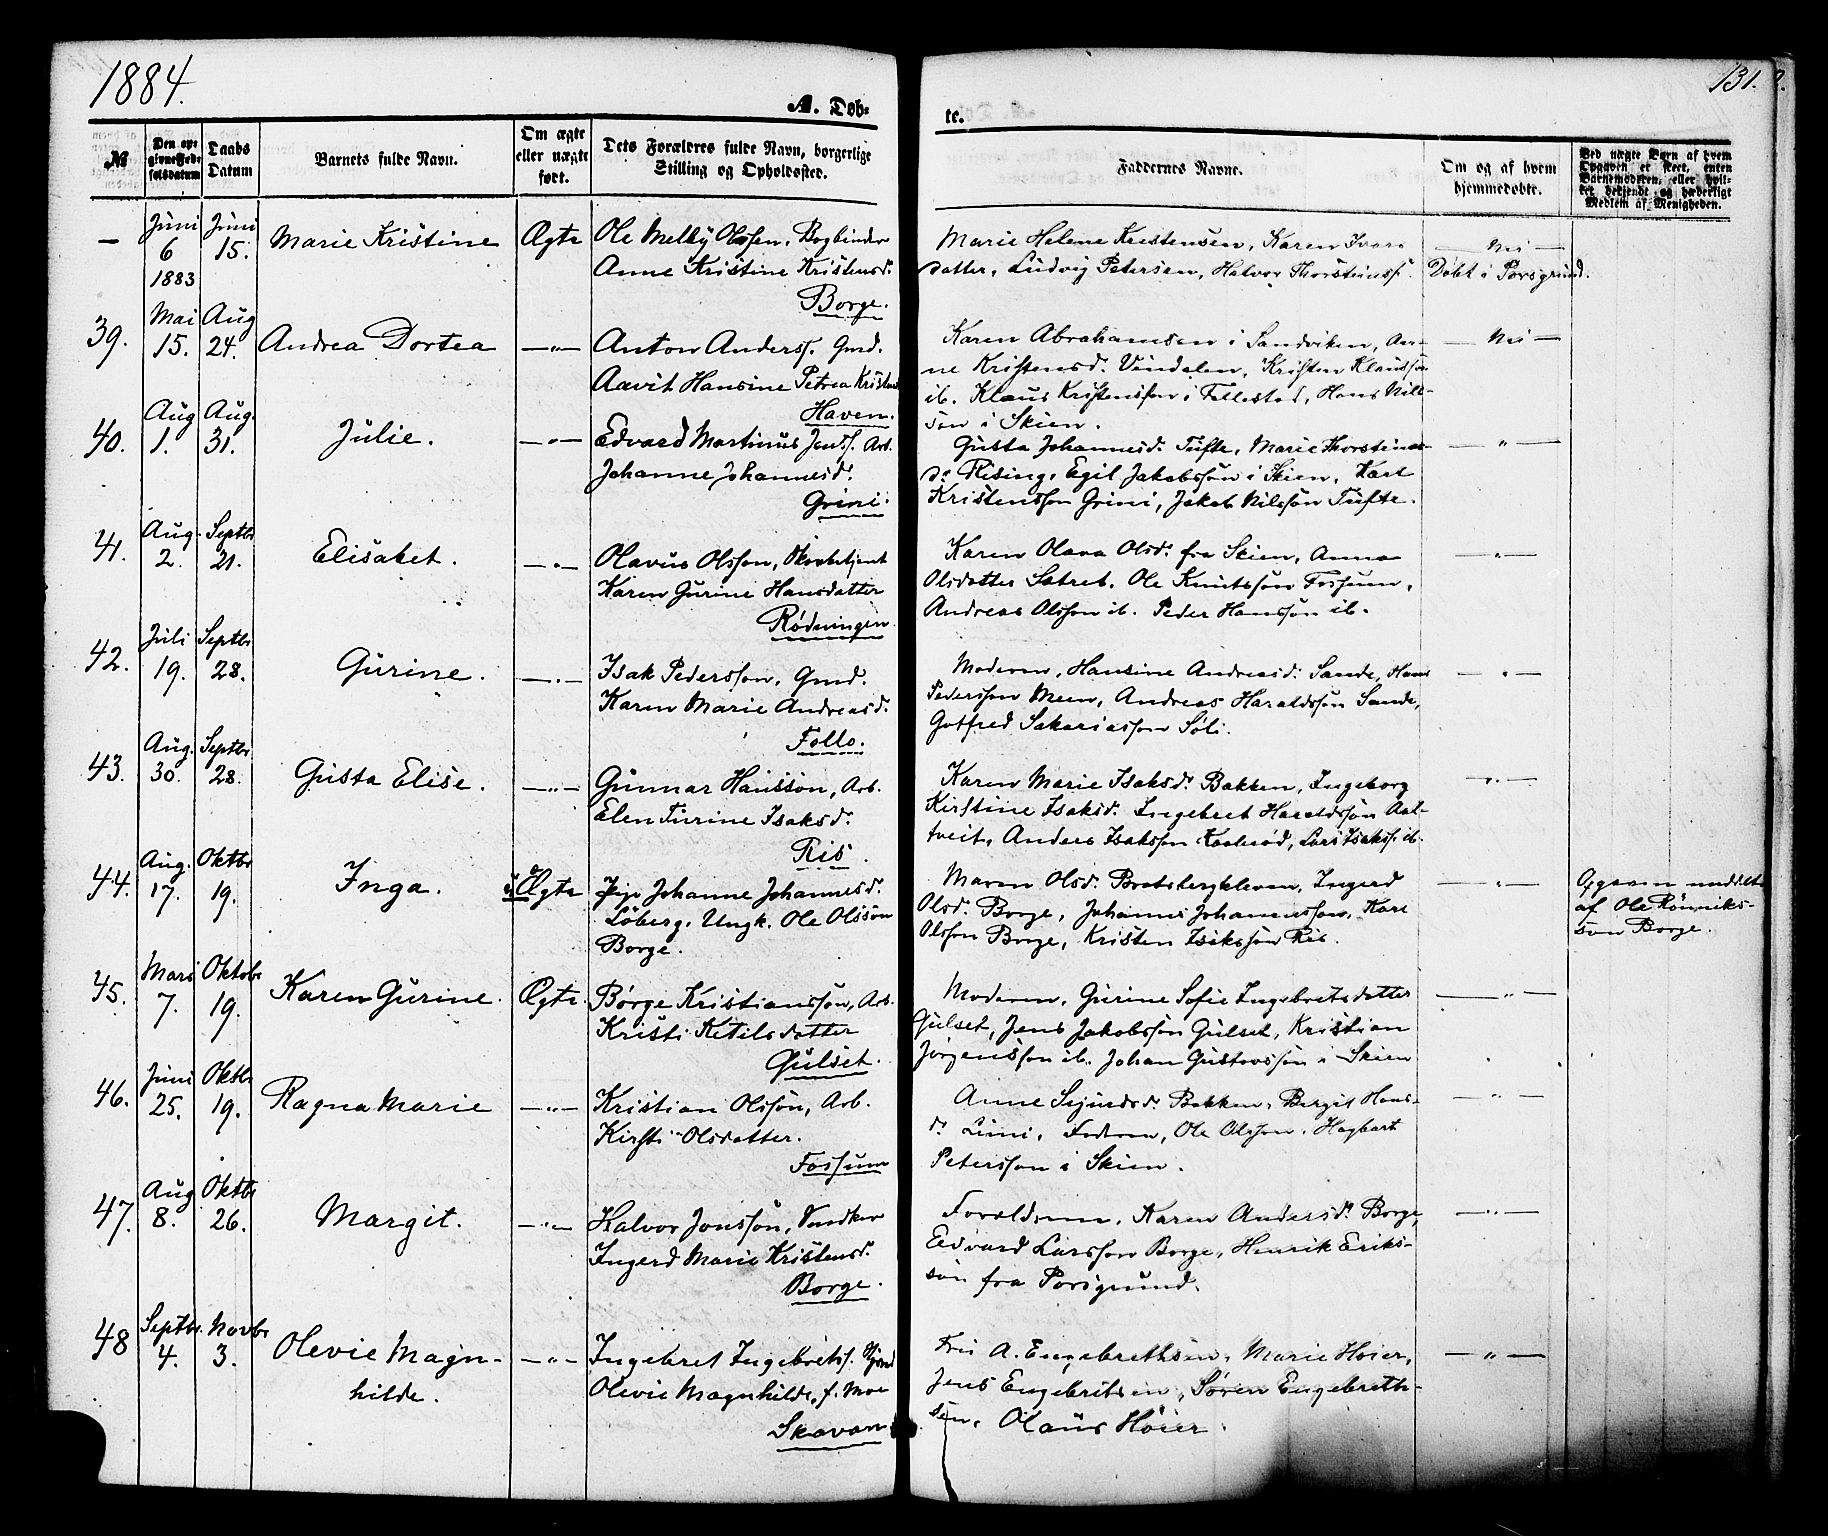 1884.
131.
A. Døb-
te.
№
Den op-
givne Fød-
selsdatum
Daabs
Datum
Barnets fulde Navn.
Om ægte
eller uægte
født.
Dets Forældres fulde Navn, borgerlige
Stilling og Opholdssted.
Faddernes Navne.
Om og af hvem
hjemmedøbt.
Ved uægte Barn af hvem
Opgaven er skeet, enten
Barnemoderen, eller hvil-
ket bekjendt og hæderligt
Medlem af Menigheden.
— Juni 6 1883 Juni 15. Marie Kristine Ægte
Ole Melby Olssen, Bogbinder
Anne Kristine Kristensd.
Borge.
Marie Helene Kristensen, Karen Ivars
datter, Ludvig Petersen, Halvor Thorsteinss.
— Nei —
Døbt i Porsgrund.
39. Mai 15. Aug 24. Andrea Dortea —"—
Anton Anderss. Gmd.
Aavit Hansine Petrea Kristens
Haven.
Karen Abrahamsen i Sandviken, An-
ne Kristensd. Vindalen, Kristen Klausson
ib. Klaus Kristensson i Follestad, Hans Nils-
son i Skien.
— Nei —
40. Aug 1. Aug. 31. Julie. —"—
Edvard Martinus Jenss. Arb.
Johanne Johannesd.
Grini.
Gusta Johannesd. Tufte, Marie Thorsteins-
d. Rising, Egil Jakobsson i Skien, Karl
Kristensson Grini, Jakob Nilsson Tufte.
— " —
41. Aug. 2. Septbr 21. Elisabet. —"—
Olavus Olsson, Skovbetjent
Karen Gurine Hansdatter
Rødningen.
Karen Olava Olsd. fra Skien, Anna
Olsdatter Sætret, Ole Knutsson Fossum,
Andreas Olsson ib. Peder Hansson ib.
— " —
42. Juli 19. Septbr 28. Gurine. —"—
Isak Pedersson, Gmd.
Karen Marie Andreasd.
Follo.
Moderen, Hansine Andreasd. Sande, Hans
Pedersson Meen, Andreas Haraldsson Sande,
Gotfred Sakariasson Søli.
— " —
43. Aug. 30. Septbr 28. Gusta Elise. —"—
Gunnar Hansson, Arb.
Elen Turine Isaksd.
Ris.
Karen Marie Isaksd. Bakken, Ingeborg
Kirstine Isaksd. Ingebret Haraldsson Aal-
tveit, Anders Isaksson Kaalrød, Lars Isakss. ib.
— " —
44. Aug. 17. Oktbr 19. Inga. uÆgte
Pige Johanne Johannesd.
Løberg, Ungk. Ole Olsson
Borge.
Maren Olsd. Bratsbergkleven, Ingerd
Olsd. Borge, Johannes Johannesson, Karl
Olsson Borge, Kristen Isaksson Ris.
— " —
Opgaven meddelt
af Ole Rønniks-
son Borge.
45. Mars 7. Oktobr 19. Karen Gurine. Ægte.
Børge Kristiansson, Arb.
Kristi Ketilsdatter
Gulset.
Moderen, Gurine Sofie Ingebretsdatter
Gulset, Jens Jakobsson Gulset, Kristian
Jørgensson ib. Johan Gustavsson i Skien
— " —
46. Juni 25. Oktbr 19. Ragna Marie —"—
Kristian Olsson, Arb.
Kirsti Olsdatter.
Fossum
Anne Sjurdsd. Bakken, Birgit Hans-
d. Limi, Faderen, Ole Olsson, Hagbart
Petersson i Skien.
— " —
47. Aug 8. Oktbr 26. Margit. —"—
Halvor Jonsson, Snedker
Ingerd Marie Kristensd.
Borge.
Forældrene, Karen Andersd. Borge,
Edvard Larsson Borge, Henrik Eriks-
son fra Porsgrund.
— " —
48 Septbr. 4. Novbr 3. Olevie Magn-
hilde. —"—
Ingebret Ingebretss.
Olevie Magnhilde, f. Moe
Skavan
Fru A. Engebrethsen, Marie Høier,
Jens Engebritsen, Søren Engebreth-
sen, Olaus Høier.
— " —